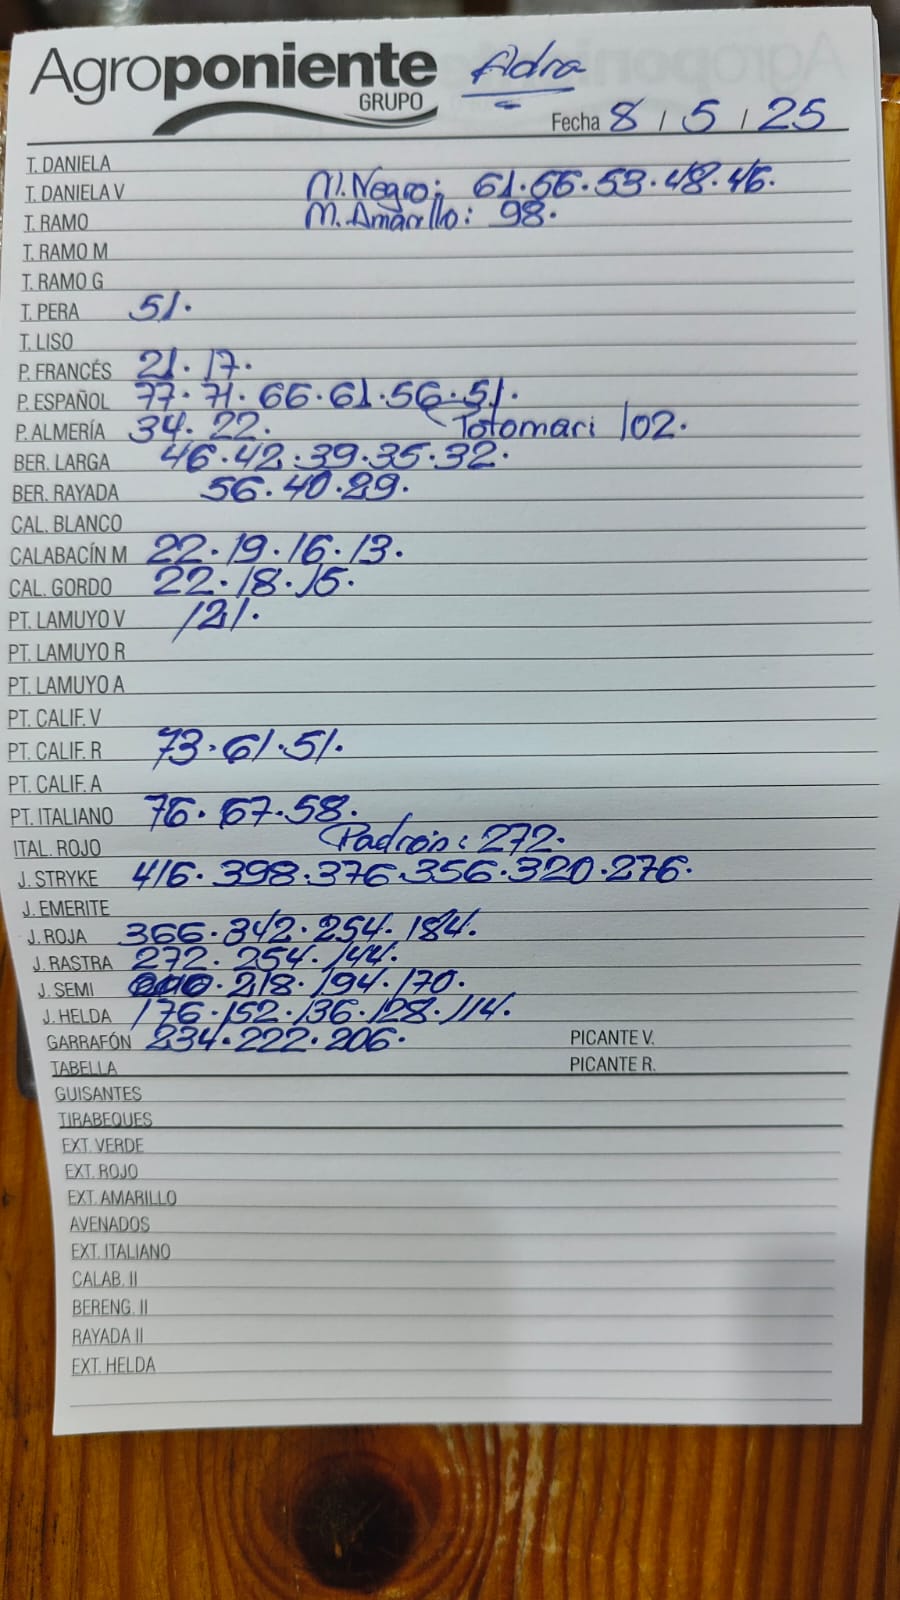 Agroponiente Adra
GRUPO
Fecha 8 / 5 / 25
T. DANIELA
T. DANIELA V M. Negro: 61. 56. 53. 48. 46.
T. RAMO M. Amarillo: 98.
T. RAMO M
T. RAMO G
T. PERA 51.
T. LISO
P. FRANCÉS 21. 17.
P. ESPAÑOL 77. 71. 66. 61. 56. 51.
P. ALMERÍA 34. 22. Totomari 102.
BER. LARGA 46. 42. 39. 35. 32.
BER. RAYADA 56. 40. 29.
CAL. BLANCO
CALABACÍN M 22. 19. 16. 13.
CAL. GORDO 22. 18. 15.
PT. LAMUYO V 121.
PT. LAMUYO R
PT. LAMUYO A
PT. CALIF. V
PT. CALIF. R 73. 61. 51.
PT. CALIF. A
PT. ITALIANO 76. 67. 58.
ITAL. ROJO Padrón: 272.
J. STRYKE 416. 398. 376. 356. 320. 276.
J. EMERITE
J. ROJA 366. 342. 254. 184.
J. RASTRA 272. 254. 144.
J. SEMI 218. 194. 170.
J. HELDA 176. 152. 136. 128. 114.
GARRAFÓN 234. 222. 206. PICANTE V.
TABELLA PICANTE R.
GUISANTES
TIRABEQUES
EXT. VERDE
EXT. ROJO
EXT. AMARILLO
AVENADOS
EXT. ITALIANO
CALAB. II
BERENG. II
RAYADA II
EXT. HELDA